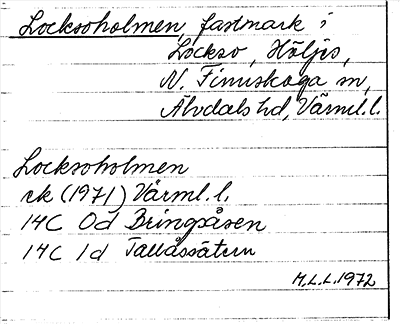 Locksoholmen, fastmark i
Lockso, Höljes,
N. Finnskoga sn,
Älvdals hd, Värml. l.
Locksoholmen
ek (1971) Värml. l.
14C 0d Bringsåsen
14C 1d Tallåssätern
M.L.L. 1972